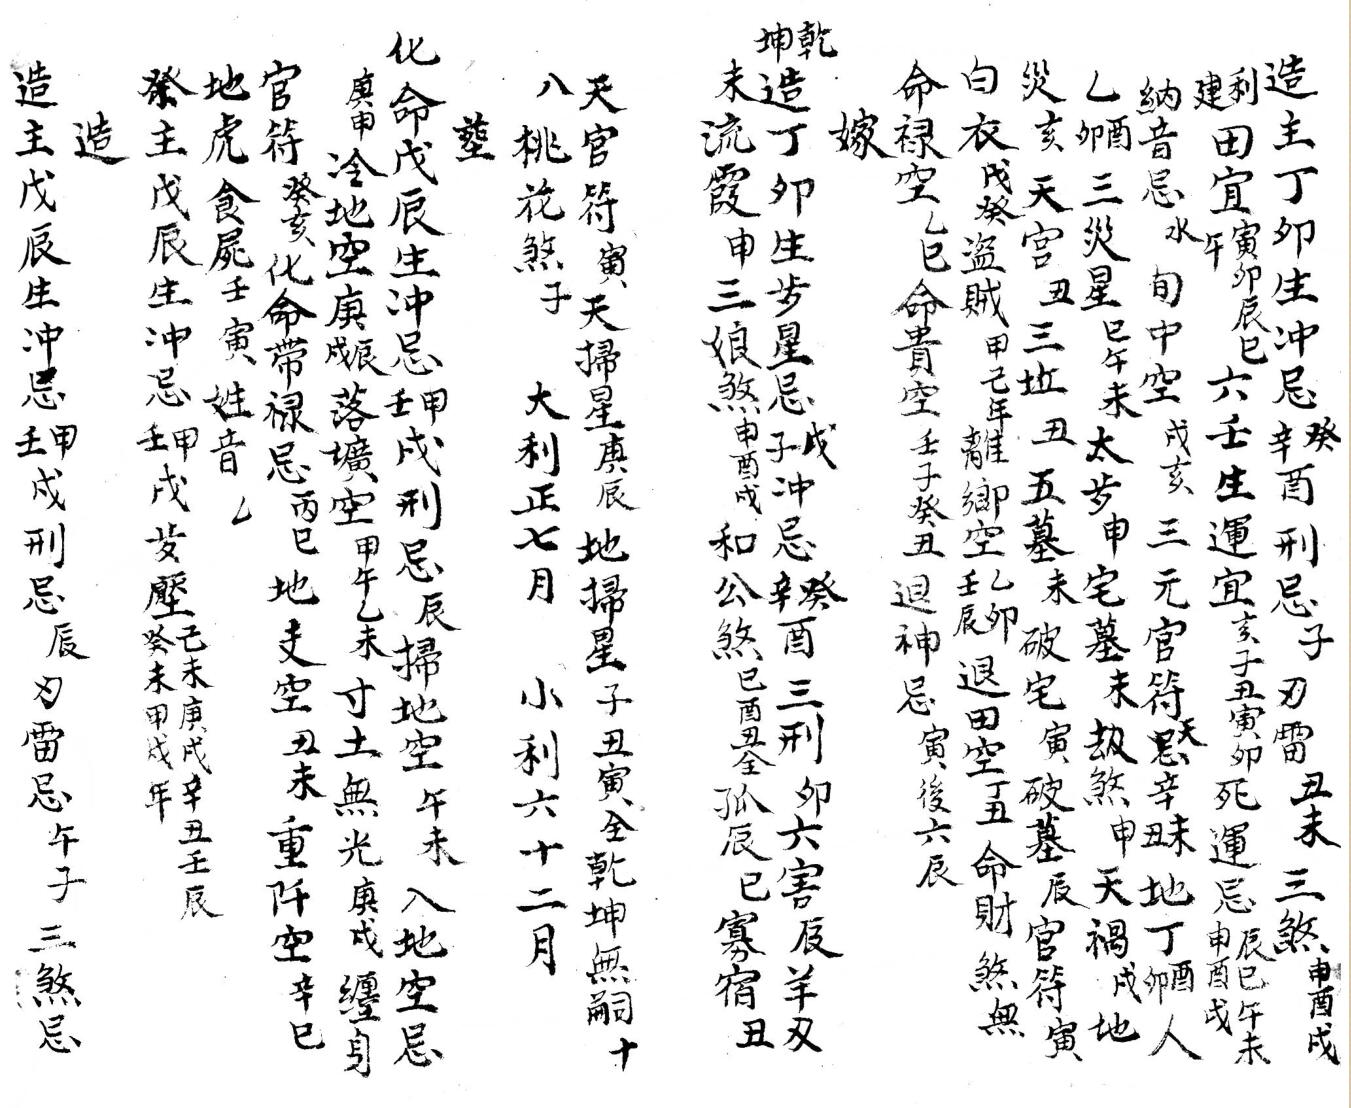 造主丁卯生冲忌癸辛酉刑忌子刃雷丑未三煞申酉戌
利建田宜寅卯辰巳午六壬生運宜亥子丑寅卯死運忌辰巳午未申酉戌
納音忌水旬中空戌亥三元官符天忌辛丑未地丁卯酉人
乙卯酉三災星巳午未太岁申宅墓未劫煞申天禍戌地
災亥天宫丑三坵丑五墓未破宅寅破墓辰官符寅
白衣戌癸盗賊甲己年離鄉空乙卯壬辰退田空丁丑命財煞無
命禄空乙巳命貴空壬子癸丑退神忌寅後六辰
嫁
乾坤造丁卯生岁星忌戊子冲忌癸辛酉三刑卯六害辰羊刃
未流霞申三娘煞申酉戌和公煞巳酉丑全孤辰巳寡宿丑
天官符寅天掃星庚辰地掃星子丑寅全乾坤無嗣十
八桃花煞子 大利正七月 小利六十二月
葬
化命戊辰生冲忌甲壬戌刑忌辰掃地空午未入地空忌
庚申冷地空庚辰戌落壙空甲午乙未寸土無光庚戌纏身
官符癸亥化命帶禄忌丙巳地支空丑未重阡空辛巳
地虎食屍壬寅姓音乙
祭主戊辰生冲忌甲壬戌岁壓己未庚戌辛丑壬辰癸未甲戌年
造
造主戊辰生冲忌甲壬戌刑忌辰刃雷忌午子三煞忌